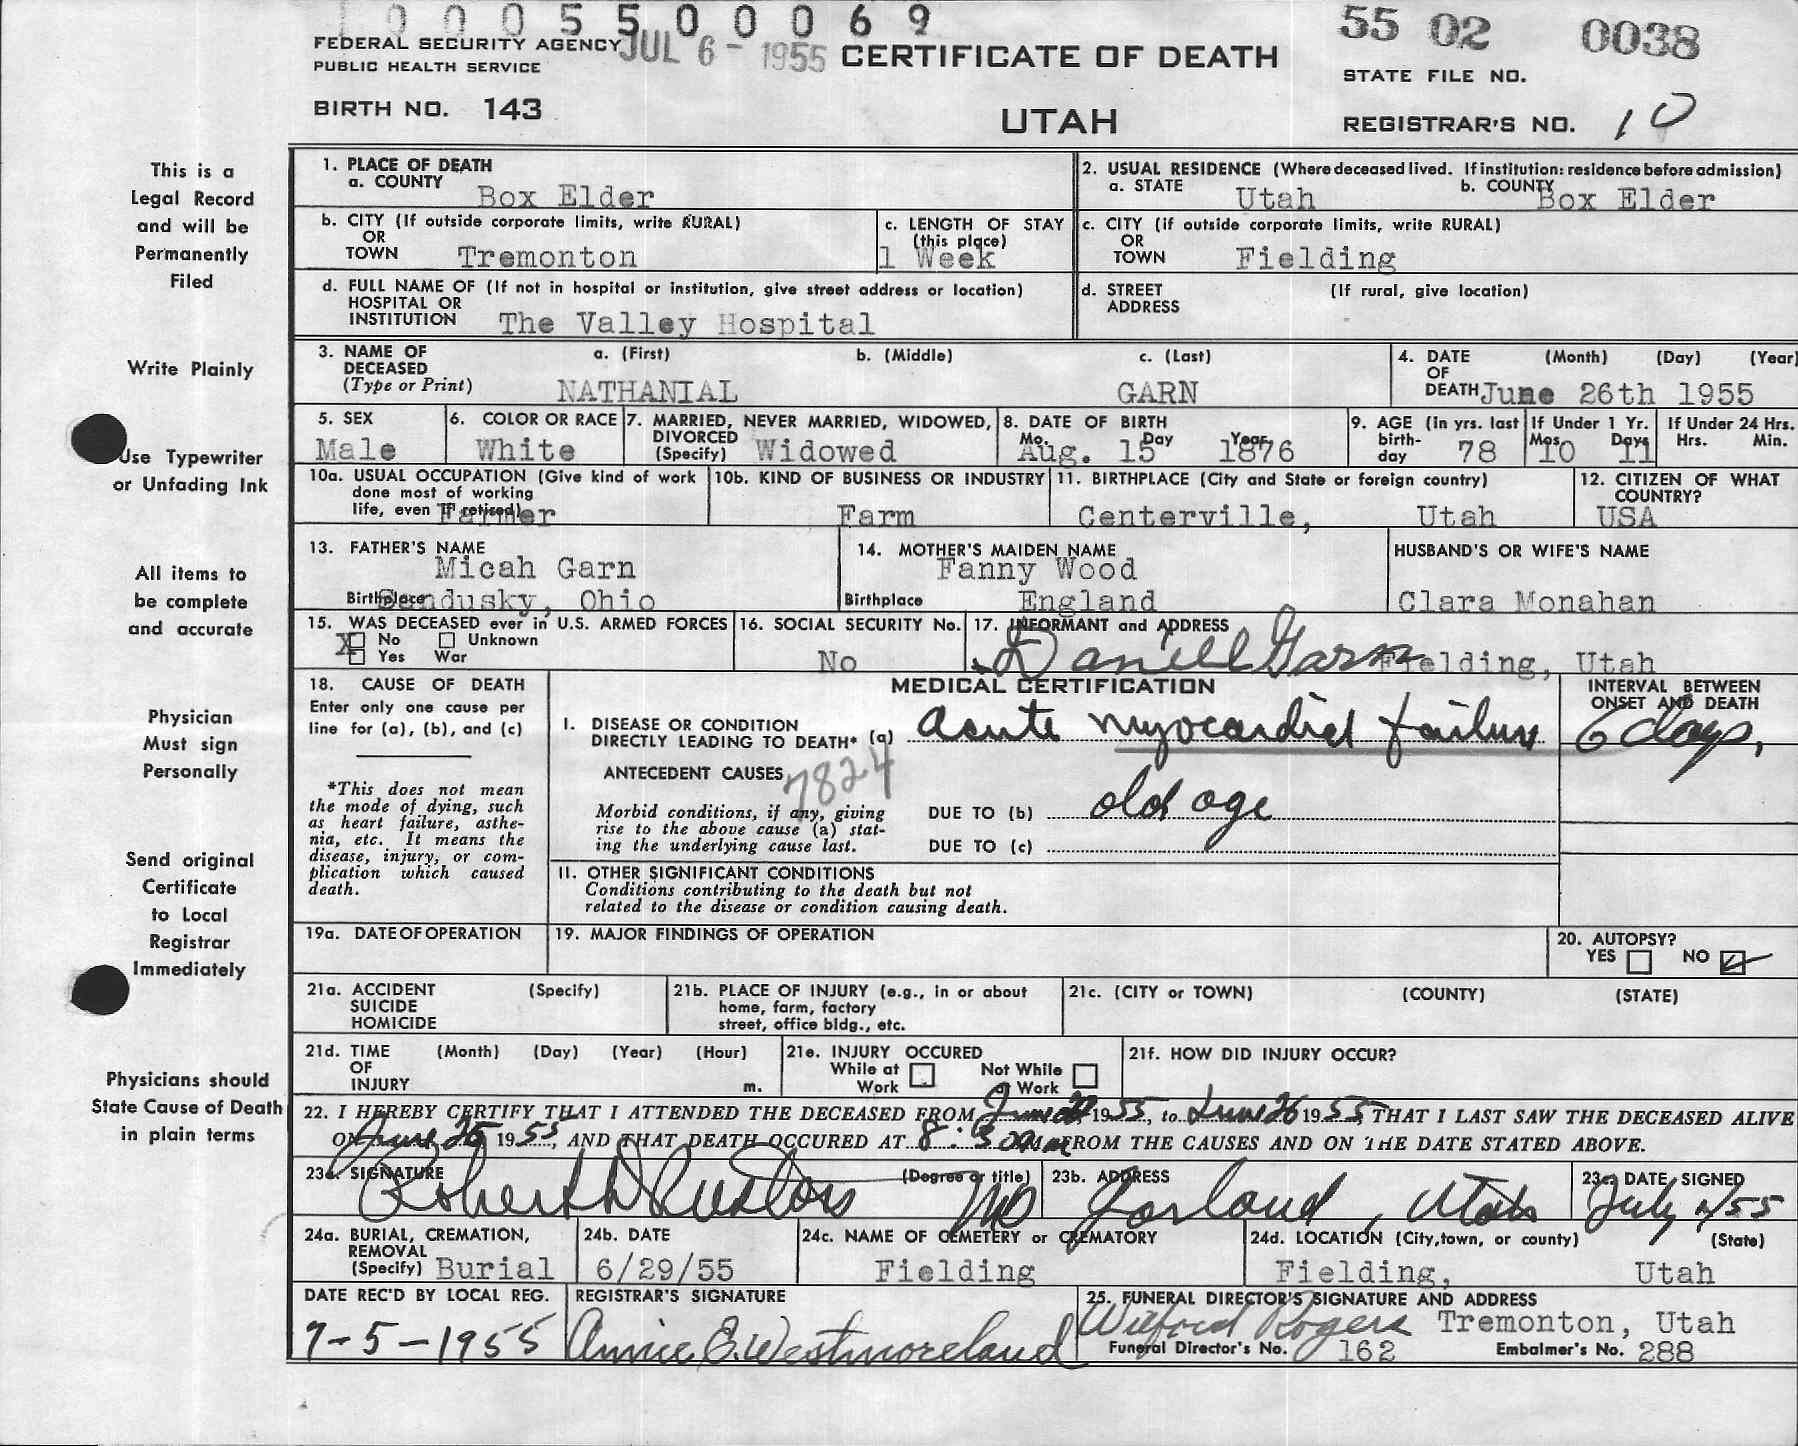 1000550069
55 02 0038
FEDERAL SECURITY AGENCY JUL 6 - 1955 CERTIFICATE OF DEATH
PUBLIC HEALTH SERVICE
STATE FILE NO.
BIRTH NO. 143
UTAH
REGISTRAR'S NO. 10
This is a
Legal Record
and will be
Permanently
Filed
Write Plainly
Use Typewriter
or Unfading Ink
All items to
be complete
and accurate
Physician
Must sign
Personally
Send original
Certificate
to Local
Registrar
Immediately
Physicians should
State Cause of Death
in plain terms
1. PLACE OF DEATH
a. COUNTY Box Elder
2. USUAL RESIDENCE (Where deceased lived. If institution: residence before admission)
a. STATE Utah b. COUNTY Box Elder
b. CITY (If outside corporate limits, write RURAL)
OR
TOWN Tremonton
c. LENGTH OF STAY
(this place)
1 Week
c. CITY (if outside corporate limits, write RURAL)
OR
TOWN Fielding
d. FULL NAME OF (If not in hospital or institution, give street address or location)
HOSPITAL OR
INSTITUTION The Valley Hospital
d. STREET (If rural, give location)
ADDRESS
3. NAME OF a. (First) b. (Middle) c. (Last)
DECEASED
(Type or Print) NATHANIAL GARN
4. DATE (Month) (Day) (Year)
OF
DEATH June 26th 1955
5. SEX
Male
6. COLOR OR RACE
White
7. MARRIED, NEVER MARRIED, WIDOWED,
DIVORCED
(Specify) Widowed
8. DATE OF BIRTH
Mo. Day Year
Aug. 15 1876
9. AGE (In yrs. last
birth-
day 78
If Under 1 Yr.
Mos. Days
10 11
If Under 24 Hrs.
Hrs. Min.
10a. USUAL OCCUPATION (Give kind of work
done most of working
life, even if retired)
Farmer
10b. KIND OF BUSINESS OR INDUSTRY
Farm
11. BIRTHPLACE (City and State or foreign country)
Centerville, Utah
12. CITIZEN OF WHAT
COUNTRY?
USA
13. FATHER'S NAME
Micah Garn
Birthplace Sandusky, Ohio
14. MOTHER'S MAIDEN NAME
Fanny Wood
Birthplace England
HUSBAND'S OR WIFE'S NAME
Clara Monahan
15. WAS DECEASED ever in U.S. ARMED FORCES
X No Unknown
Yes War
16. SOCIAL SECURITY No.
No
17. INFORMANT and ADDRESS
Daniell Garn Fielding, Utah
18. CAUSE OF DEATH
Enter only one cause per
line for (a), (b), and (c)
*This does not mean
the mode of dying, such
as heart failure, asthe-
nia, etc. It means the
disease, injury, or com-
plication which caused
death.
MEDICAL CERTIFICATION
I. DISEASE OR CONDITION
DIRECTLY LEADING TO DEATH* (a) acute myocardial failure
ANTECEDENT CAUSES
7824
Morbid conditions, if any, giving
rise to the above cause (a) stat-
ing the underlying cause last.
DUE TO (b) old age
DUE TO (c)
II. OTHER SIGNIFICANT CONDITIONS
Conditions contributing to the death but not
related to the disease or condition causing death.
INTERVAL BETWEEN
ONSET AND DEATH
6 days,
19a. DATE OF OPERATION
19. MAJOR FINDINGS OF OPERATION
20. AUTOPSY?
YES NO
21a. ACCIDENT (Specify)
SUICIDE
HOMICIDE
21b. PLACE OF INJURY (e.g., in or about
home, farm, factory
street, office bldg., etc.
21c. (CITY or TOWN) (COUNTY) (STATE)
21d. TIME (Month) (Day) (Year) (Hour)
OF
INJURY m.
21e. INJURY OCCURED
While at Not While
Work at Work
21f. HOW DID INJURY OCCUR?
22. I HEREBY CERTIFY THAT I ATTENDED THE DECEASED FROM June 1955, to June 26 1955, THAT I LAST SAW THE DECEASED ALIVE
ON June 25 1955, AND THAT DEATH OCCURED AT 8:30 am FROM THE CAUSES AND ON THE DATE STATED ABOVE.
23a. SIGNATURE (Degree or title)
Robert MD
23b. ADDRESS
Garland, Utah
23c. DATE SIGNED
July 55
24a. BURIAL, CREMATION,
REMOVAL
(Specify) Burial
24b. DATE
6/29/55
24c. NAME OF CEMETERY or CREMATORY
Fielding
24d. LOCATION (City, town, or county) (State)
Fielding, Utah
DATE REC'D BY LOCAL REG.
7-5-1955
REGISTRAR'S SIGNATURE
Annie E. Westmoreland
25. FUNERAL DIRECTOR'S SIGNATURE AND ADDRESS
Wilford Rogers Tremonton, Utah
Funeral Director's No. 162 Embalmer's No. 288